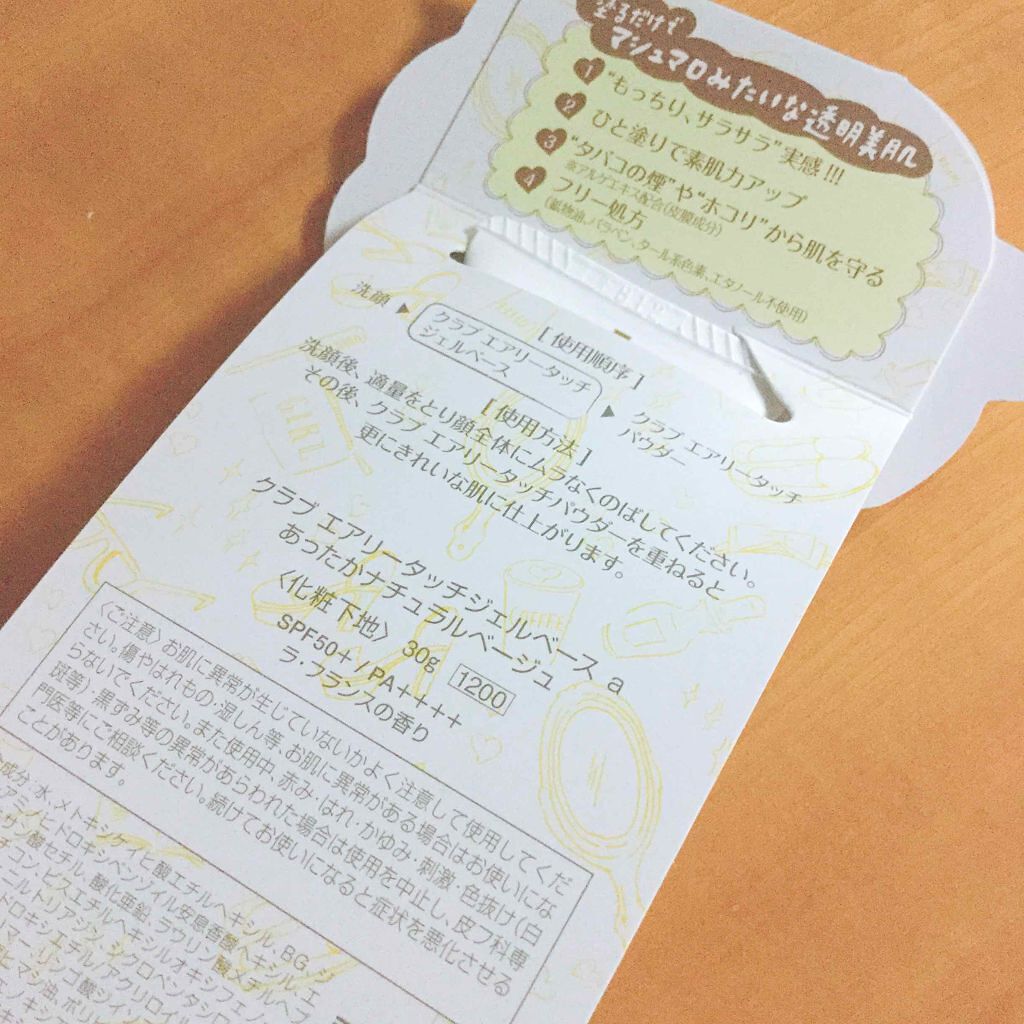 塗るだけで
マシュマロみたいな透明美肌
1 "もっちり、サラサラ"実感!!!
2 ひと塗りで素肌力アップ
3 "タバコの煙"や"ホコリ"から肌を守る
※アルゲエキス配合(皮膜成分)
4 フリー処方
(鉱物油、パラベン、タール系色素、エタノール不使用)
[ 使用順序 ]
洗顔 ▶ クラブ エアリータッチ
ジェルベース ▶ クラブ エアリータッチ
パウダー
[ 使用方法 ]
洗顔後、適量をとり顔全体にムラなくのばしてください。
その後、クラブ エアリータッチパウダーを重ねると
更にきれいな肌に仕上がります。
クラブ エアリータッチジェルベース a
あったかナチュラルベージュ
〈化粧下地〉 30g 1200
SPF50+/PA++++
ラ・フランスの香り
〈ご注意〉お肌に異常が生じていないかよく注意して使用してくだ
さい。傷やはれもの・湿しん等、お肌に異常がある場合はお使いにな
らないでください。また使用中、赤み・はれ・かゆみ・刺激・色抜け(白
斑等)・黒ずみ等の異常があらわれた場合は使用を中止し、皮フ科専
門医等にご相談ください。続けてお使いになると症状を悪化させる
ことがあります。
成分:水、メトキシケイヒ酸エチルヘキシル、BG、ジ
アミノヒドロキシベンゾイル安息香酸ヘキシル、エ
サン酸セチル、酸化亜鉛、ラウリン酸メチルヘプ
チコン、ビスエチルヘキシルオキシフェノ
ニルトリアジン、シクロペンタシロ
ドロキシエチル/アクリロイル
マー、リンゴ酸ジイソ
ヒマシ油、ポリヒ